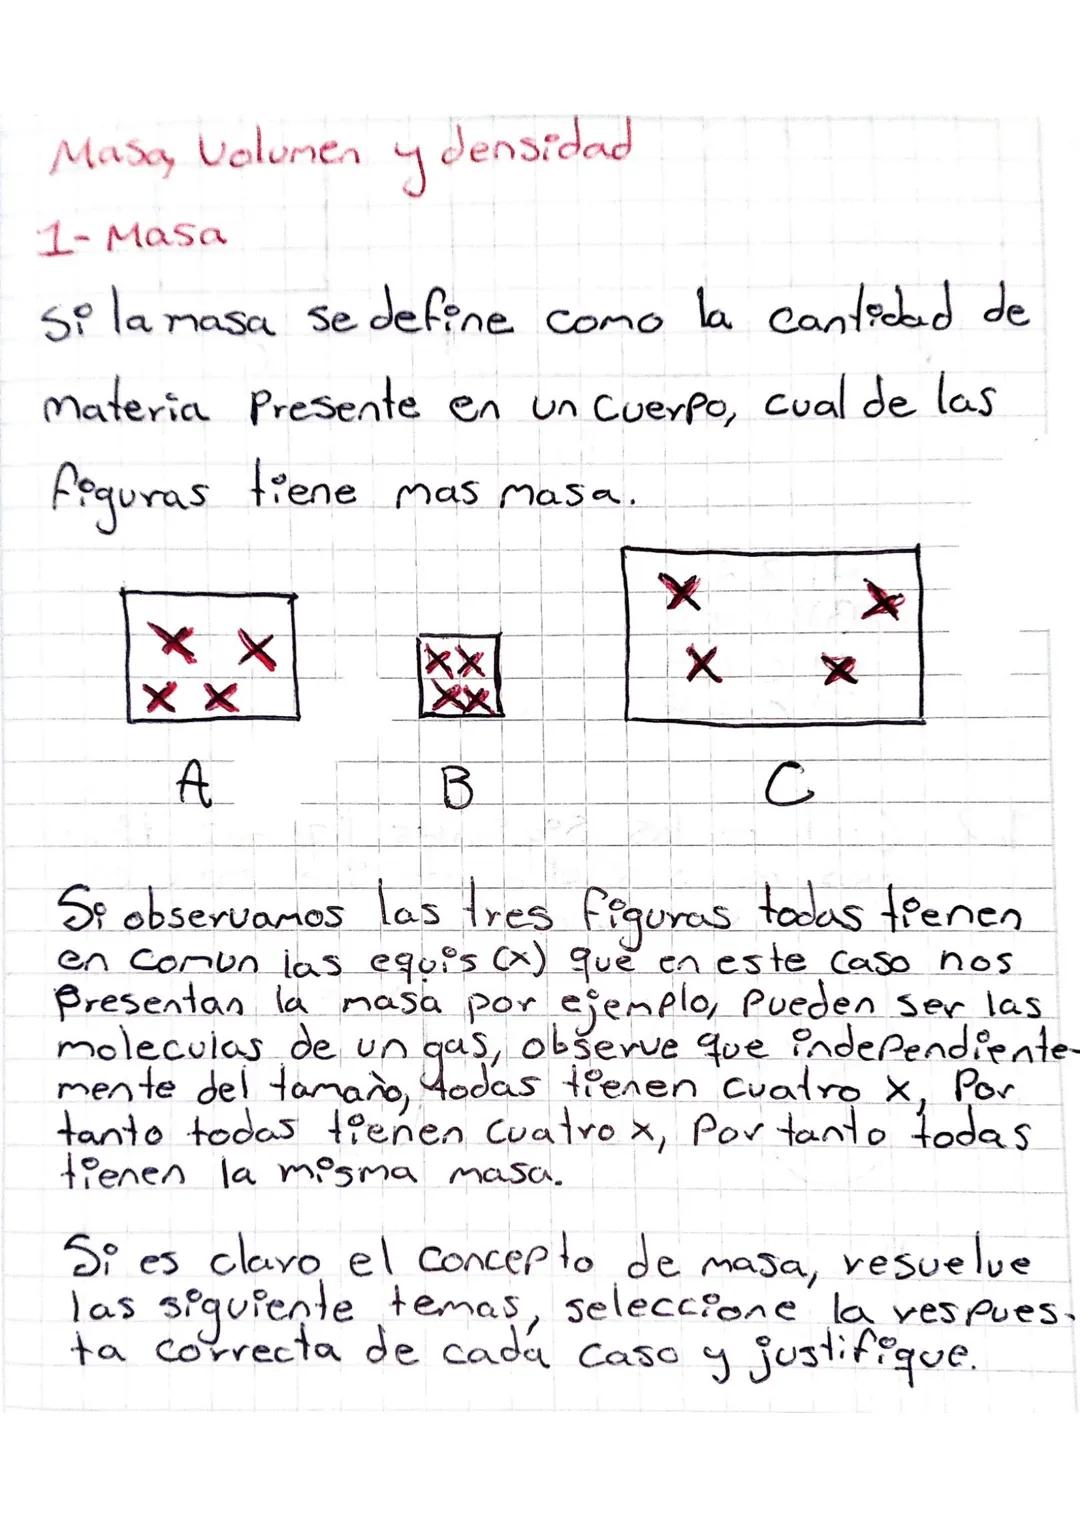 Masa, Volumen y densidad
1- Masa
Si la masa se define como la cantidad de
materia Presente en un cuerpo, cual de las
figuras tiene mas masa.
A B C
Si observamos las tres figuras todas tienen
en comun las equis (x) que en este caso nos
Presentan la masa por ejemplo, Pueden ser las
moleculas de un gas, observe que independiente-
mente del tamaño, todas tienen cuatro x, Por
tanto todas tienen cuatro x, Por tanto todas
tienen la misma masa.
Si es claro el concepto de masa, resuelve
las siguiente temas, seleccione la respues-
ta correcta de cada caso y justifique.